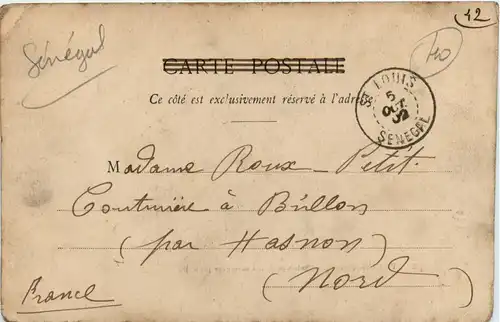 12
40
Sénégal
CARTE POSTALE
Ce côté est exclusivement réservé à l'adre
ST LOUIS
5
OCT
02
SENEGAL
Madame Roux-Petit.
Couturière à Brillon
(par Hasnon)
(Nord)
France